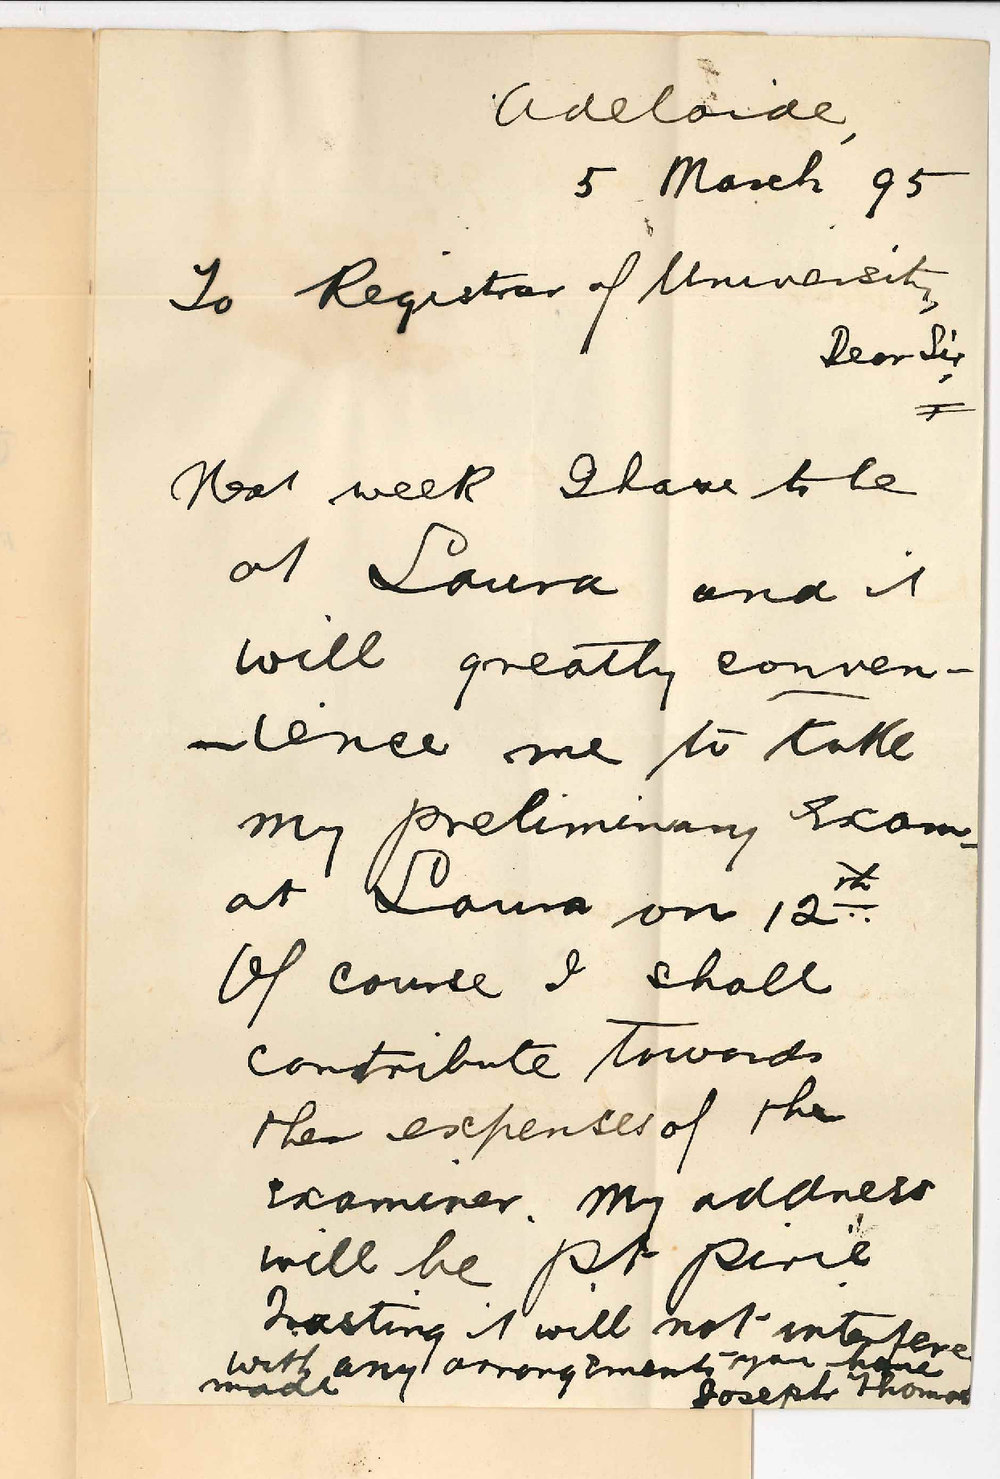 Adelaide,
5 March 95
To Registrar of University,
Dear Sir,
Next week I have to be
at Laura and it
will greatly conven-
-ience me to take
my preliminary Exam-
at Laura on 12th
Of course I shall
contribute towards
the expenses of the
examiner. My address
will be Pt Pirie
Trusting it will not interfere
with any arrangements you have
made
Joseph Thomas